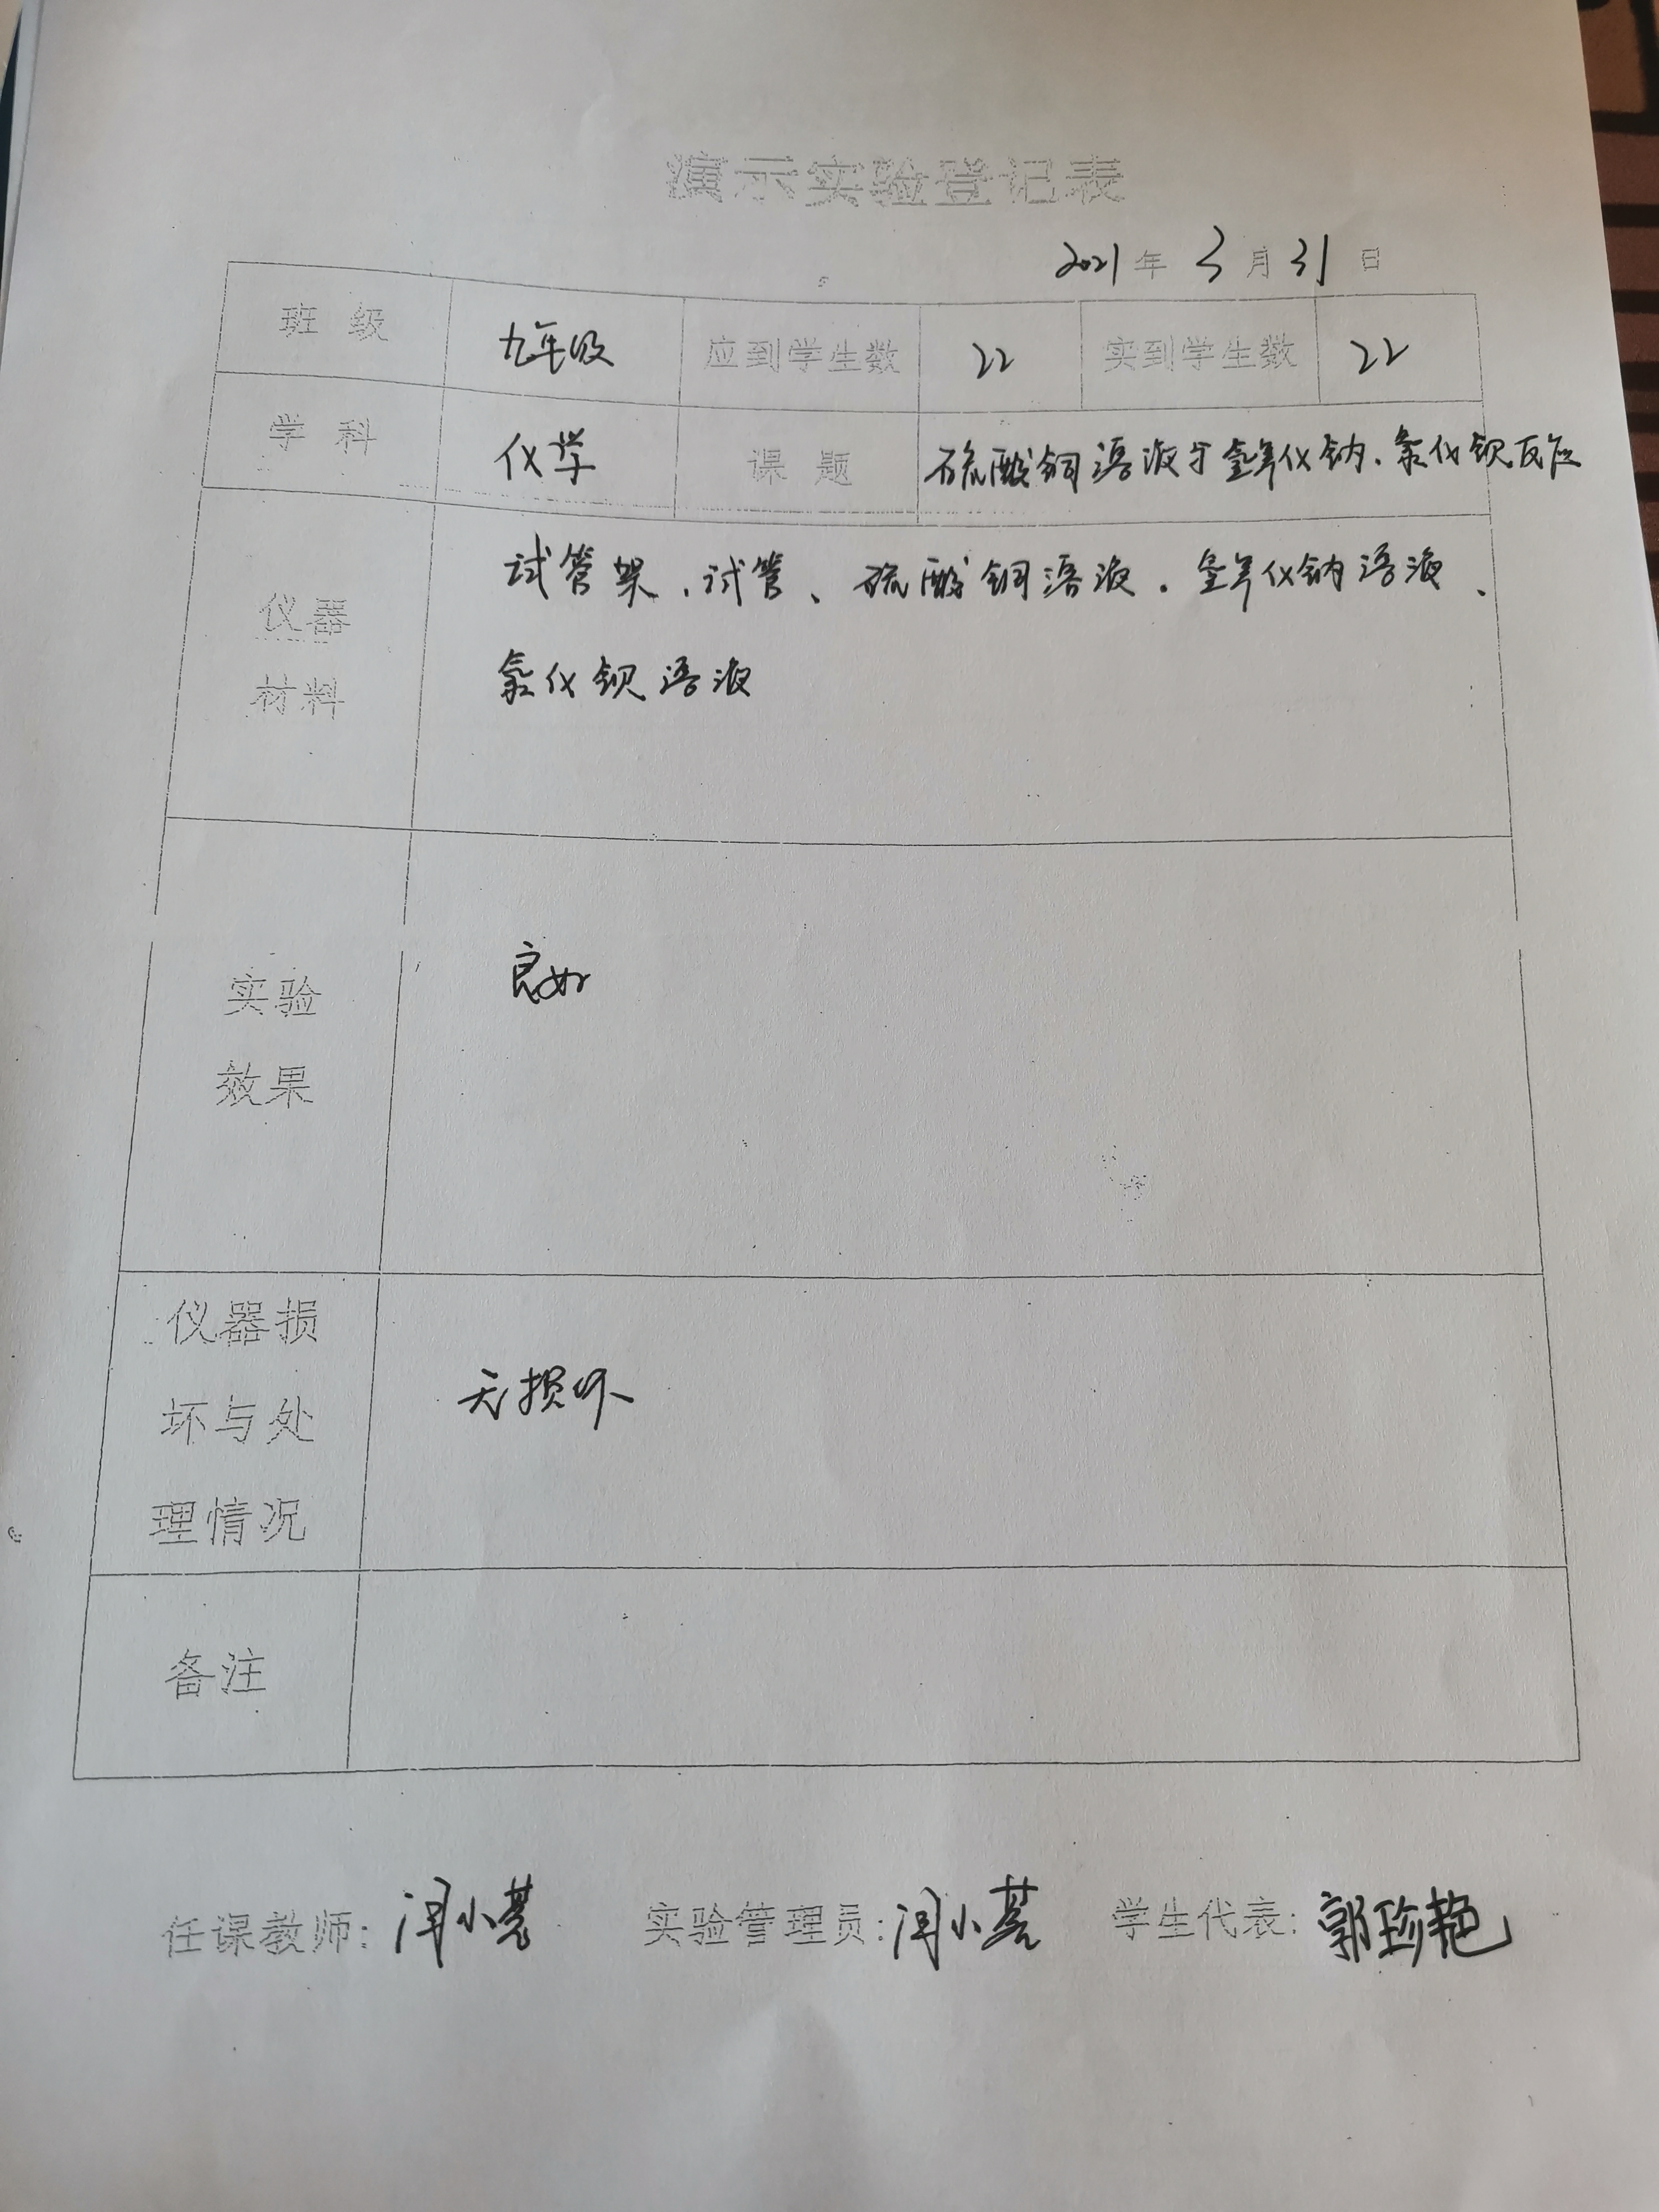 演示实验登记表
2021年3月31日
班级 九年级 应到学生数 22 实到学生数 22
学科 化学 课题 硫酸铜溶液于氢氧化钠、氯化钡反应
试管架、试管、硫酸铜溶液、氢氧化钠溶液、
仪器
材料
氯化钡溶液
实验
效果
良好
仪器损
坏与处
理情况
无损坏
备注
任课教师: 闫小 实验管理员: 闫小 学生代表: 郭珍艳